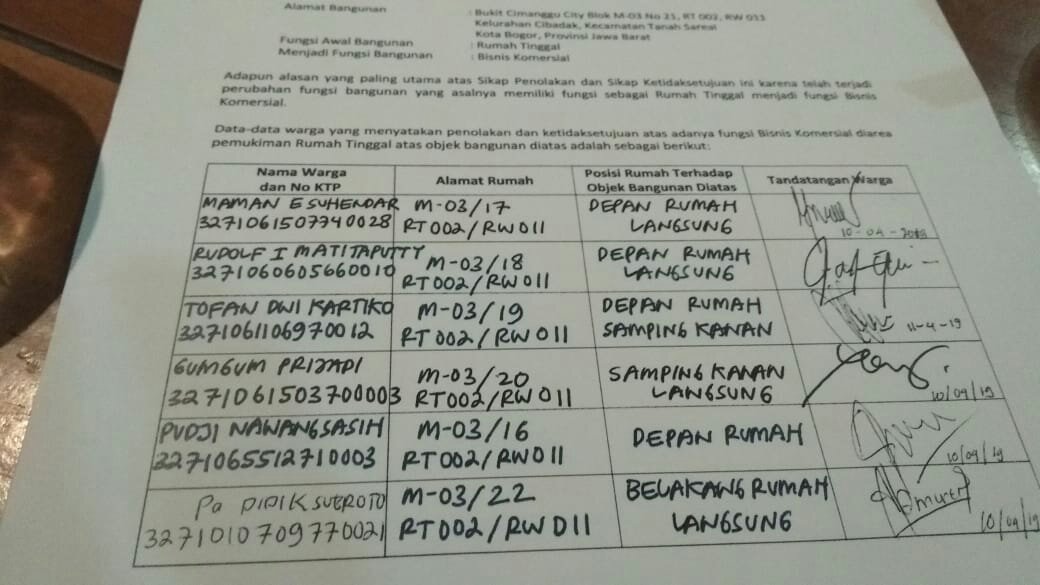 Alamat Bangunan : Bukit Cimanggu City Blok M-03 No 21, RT 002, RW 011
Kelurahan Cibadak, Kecamatan Tanah Sareal
Kota Bogor, Provinsi Jawa Barat
Fungsi Awal Bangunan : Rumah Tinggal
Menjadi Fungsi Bangunan : Bisnis Komersial
Adapun alasan yang paling utama atas Sikap Penolakan dan Sikap Ketidaksetujuan ini karena telah terjadi
perubahan fungsi bangunan yang asalnya memiliki fungsi sebagai Rumah Tinggal menjadi fungsi Bisnis
Komersial.
Data-data warga yang menyatakan penolakan dan ketidaksetujuan atas adanya fungsi Bisnis Komersial diarea
pemukiman Rumah Tinggal atas objek bangunan diatas adalah sebagai berikut:
Nama Warga Alamat Rumah Posisi Rumah Terhadap Tandatangan Warga
dan No KTP Objek Bangunan Diatas
MAMAN E SUHENDAR M-03/17 DEPAN RUMAH
3271061507740028 RT002/RW011 LANGSUNG 10-04-2019
RUDOLF I MATITAPUTTY M-03/18 DEPAN RUMAH
3271060605660010 RT002/RW011 LANGSUNG
TOFAN DWI KARTIKO M-03/19 DEPAN RUMAH
3271061106970012 RT002/RW011 SAMPING KANAN 11-4-19
GUMGUM PRIJADI M-03/20 SAMPING KANAN
3271061503700003 RT002/RW011 LANGSUNG 10/04/19
PUDJI NAWANGSASIH M-03/16 DEPAN RUMAH
3271065512710003 RT002/RW011 10/04/19
Pa DIDIK SUEROTO M-03/22 BELAKANG RUMAH
3271010709770021 RT002/RW011 LANGSUNG 10/04/19